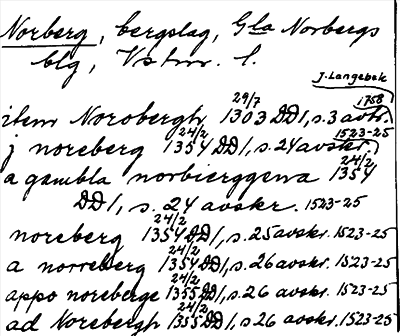 Norberg, bergslag, Gla Norbergs
blg, Vstm. l.
J. Langebek
1758
item Norobergh 29/7 1303 DD 1, s. 3 avskr.
1523-25
j noreberg 24/2 1354 DD 1, s. 24 avskr.
a gambla norbierggena 24/2 1354
DD 1, s. 24 avskr. 1523-25
noreberg 24/2 1354 DD 1, s. 25 avskr. 1523-25
a norreberg 24/2 1354 DD 1, s. 26 avskr. 1523-25
appo noreberge 24/2 1355 DD 1, s. 26 avskr. 1523-25
ad Norebergh 24/2 1355 DD 1, s. 26 avskr. 1523-25